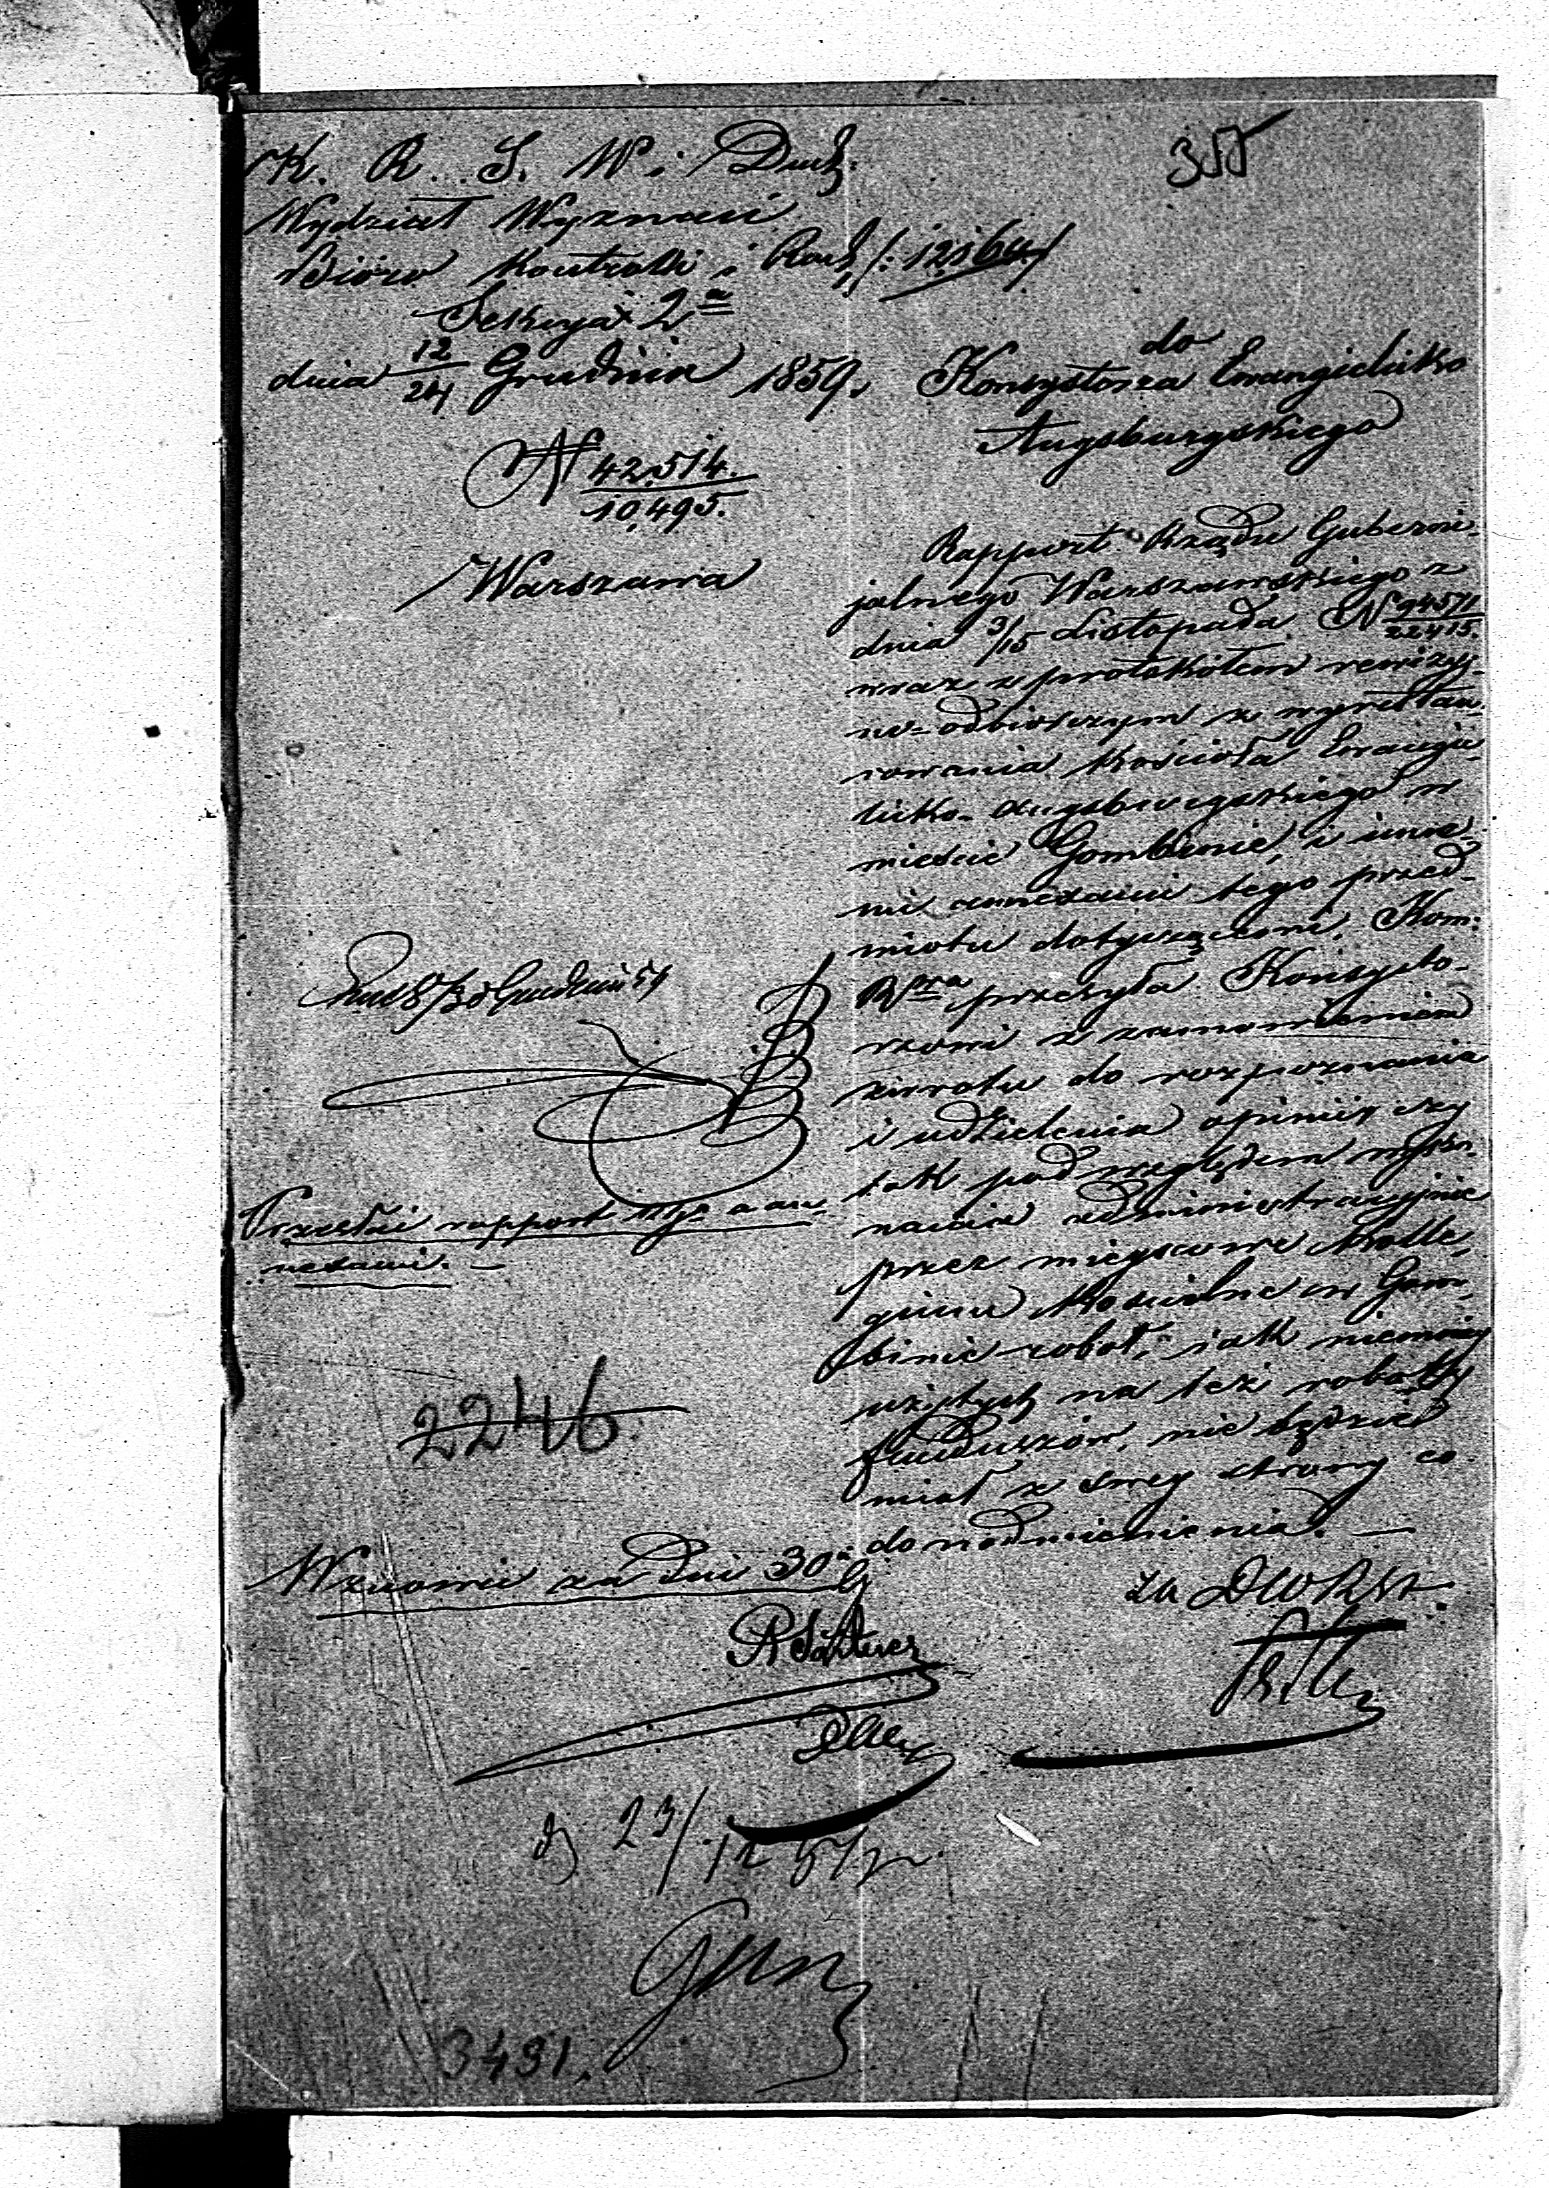 K. R. S. W. i Duch.
Wydział Wyznań
Biuro Kontrolli i Rach.
Sekcya 2a
dnia 12/24 Grudnia 1859.
N 42,514./10,495.
Warszawa
do
Konsystorza Ewangielicko
Augsburgskiego
Rapport Rządu Guberni-
jalnego Warszawskiego z
dnia 3/15 Listopada N 94571/22415.
wraz z protokołem rewizyj-
no-odbiorczym z wyrestau-
rowania Kościoła Ewangie-
licko-Augsburgskiego w
mieście Gombinie, i inne-
mi annexami tego przed-
miotu dotyczącemi, Kom:
Rząa przesyła Konsysto-
rzowi z zamówieniem
zwrotu do rozpoznania
i udzielenia opinii, czy
tak pod względem wyko-
nania administracyjnie
przez miejscowe Kolle-
gium Kościelne w Gom-
binie robót, jak niemniej
użytych na też roboty
funduszów, nie będzie
miał z swej strony co
do nadmienienia. —
za Dyrektora
Przesłać rapport w/p z an-
nexami. —
2246
Wznowić za dni 30
d 23/12 59
3491.